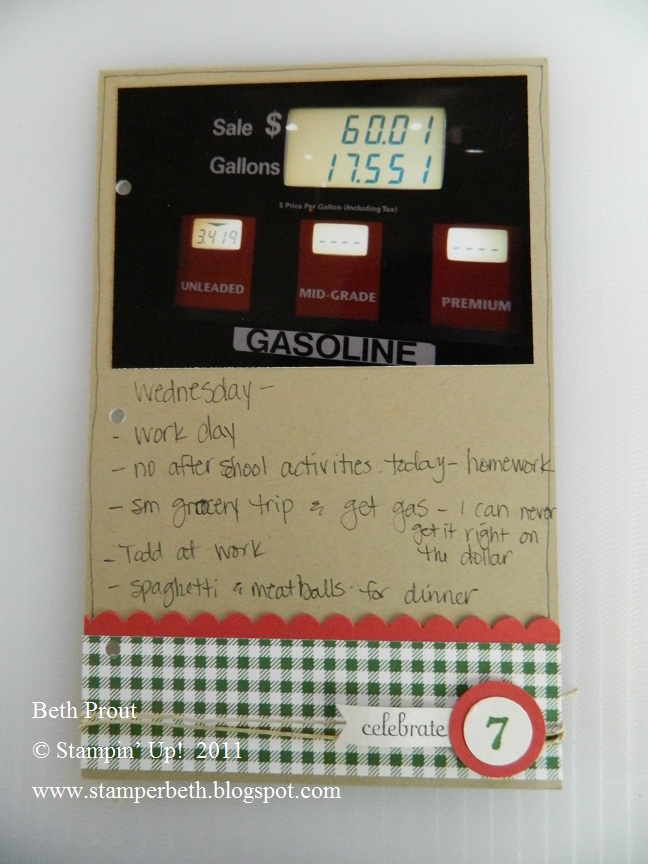 Sale $ 60.01
Gallons 17.551
$ Price Per Gallon (Including Tax)
3.419
- - - -
- - - -
UNLEADED
MID-GRADE
PREMIUM
GASOLINE
Wednesday -
- work day
- no after school activities today - homework
- sm grocery trip & get gas - I can never
get it right on
the dollar
- Todd at work
- spaghetti & meatballs for dinner
celebrate 7
Beth Prout
© Stampin' Up! 2011
www.stamperbeth.blogspot.com